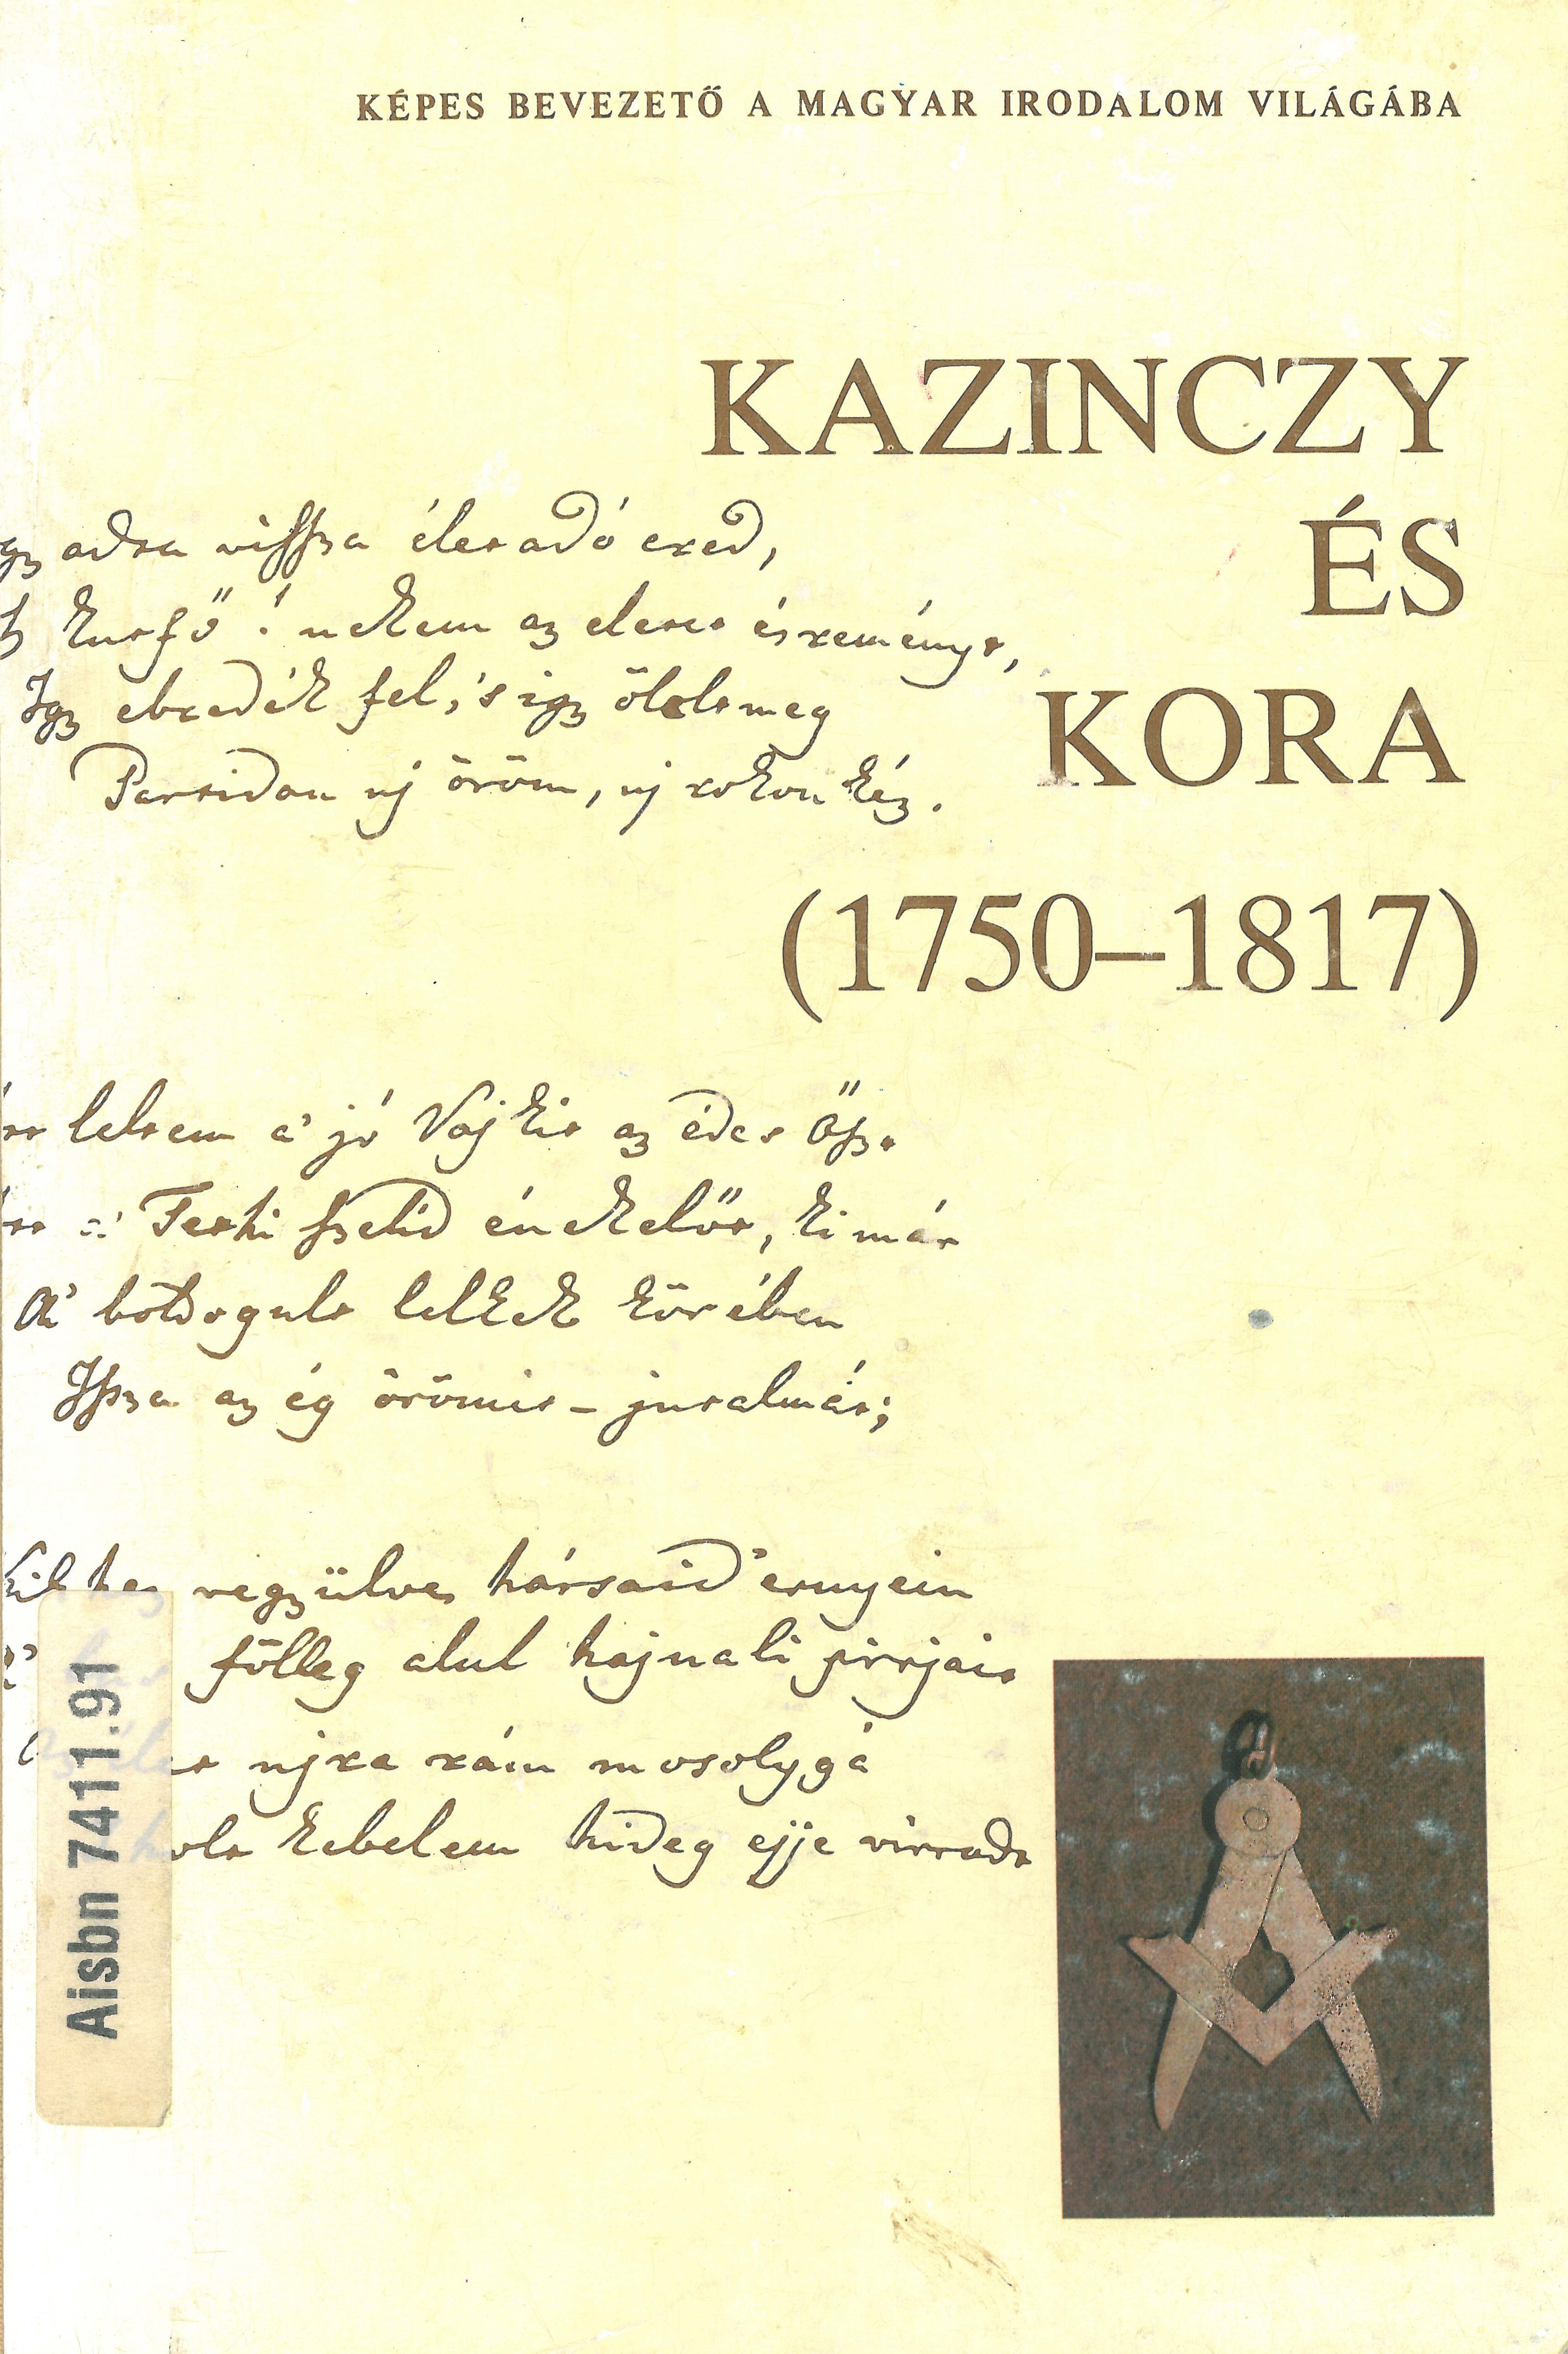 KÉPES BEVEZETŐ A MAGYAR IRODALOM VILÁGÁBA
KAZINCZY
ÉS
KORA
(1750–1817)
adta viſſza életadó ered,
kútfő! nekem az életet és reményt,
Igy ebredék fel, 's igy ölele meg
Partidon uj öröm, uj rokon kéz.
leltem a' jó Vajkit az édes Őszt
a' Teshi ſzelíd éneklőt, ki már
A' bóldogult lelkek körében
Iſsza az ég örömit – jutalmát;
vegyülve hársaid' ernyein
fölleg alul hajnali pirjait
ujra rám mosolygá
volt kebelem hideg ejje virradt
Aisbn 7411.91